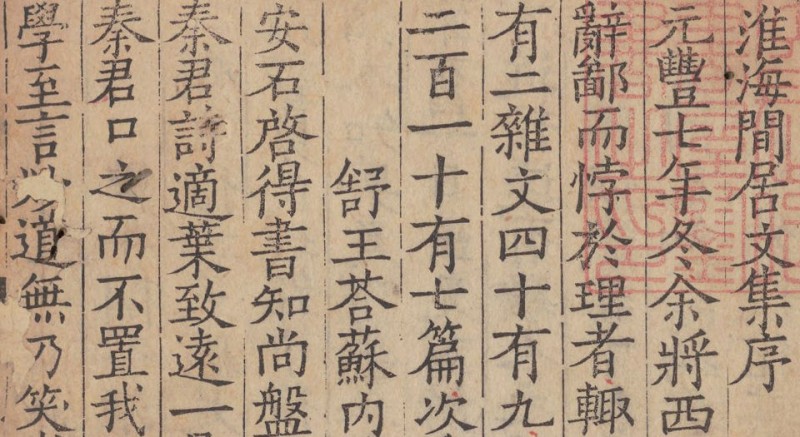 淮海閒居文集序
元豐七年冬余將西
辭鄙而悖於理者輙
有二雜文四十有九
二百一十有七篇次
舒王荅蘇內
安石啓得書知尚盤
秦君詩適葉致遠一
秦君口之而不置我
學至言妙道無乃笑